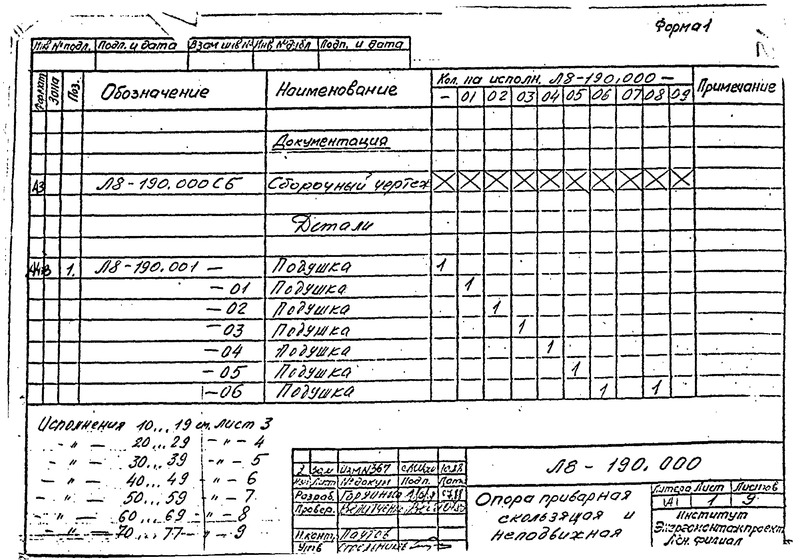 Форма 1
Инв № подл. Подп. и дата Взам инв № Инв № дубл Подп. и дата
Формат Зона Поз. Обозначение Наименование Кол. на исполн. Л8-190.000 — Примечание
— 01 02 03 04 05 06 07 08 09
Документация
А3 Л8-190.000 СБ Сборочный чертеж X X X X X X X X X X
Детали
1. Л8-190.001 — Подушка 1
— 01 Подушка 1
— 02 Подушка 1
— 03 Подушка 1
— 04 Подушка 1
— 05 Подушка 1
— 06 Подушка 1 1
Исполнения 10...19 см. лист 3
— " — 20...29 — " — 4
— " — 30...39 — " — 5
— " — 40...49 — " — 6
— " — 50...59 — " — 7
— " — 60...69 — " — 8
— " — 70...77 — " — 9
2 зам ИЗМ N367
Изм Лист № докум Подп. Дата
Разраб.
Провер.
Н.контр.
Утв
Л8-190.000
Опора приварная
скользящая и
неподвижная
Литера Лист Листов
А1 1 9
Институт
Энергомонтажпроект
Лен. филиал